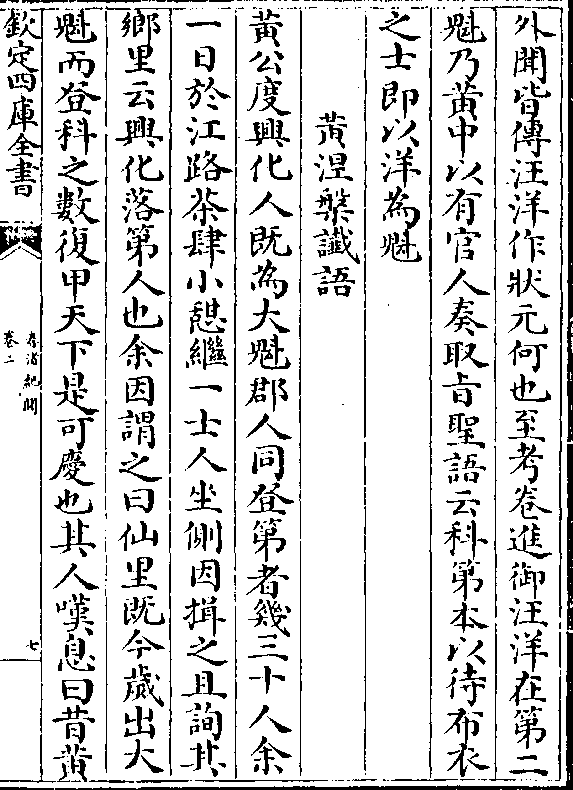 外聞皆傳汪洋作狀元何也至考卷進御汪洋在第二
魁乃黄中以有官人奏取㫖聖語云科第本以待布衣
之士即以洋為魁
黄涅槃讖語
黄公度興化人既為大魁郡人同登第者幾三十人余
一日於江路茶肆小憇繼一士人坐側因揖之且詢其
鄉里云興化落第人也余因謂之曰仙里既今歲出大
魁而登科之數復甲天下是可慶也其人嘆息曰昔黄
欽定四庫全書
春渚紀聞
卷二
七